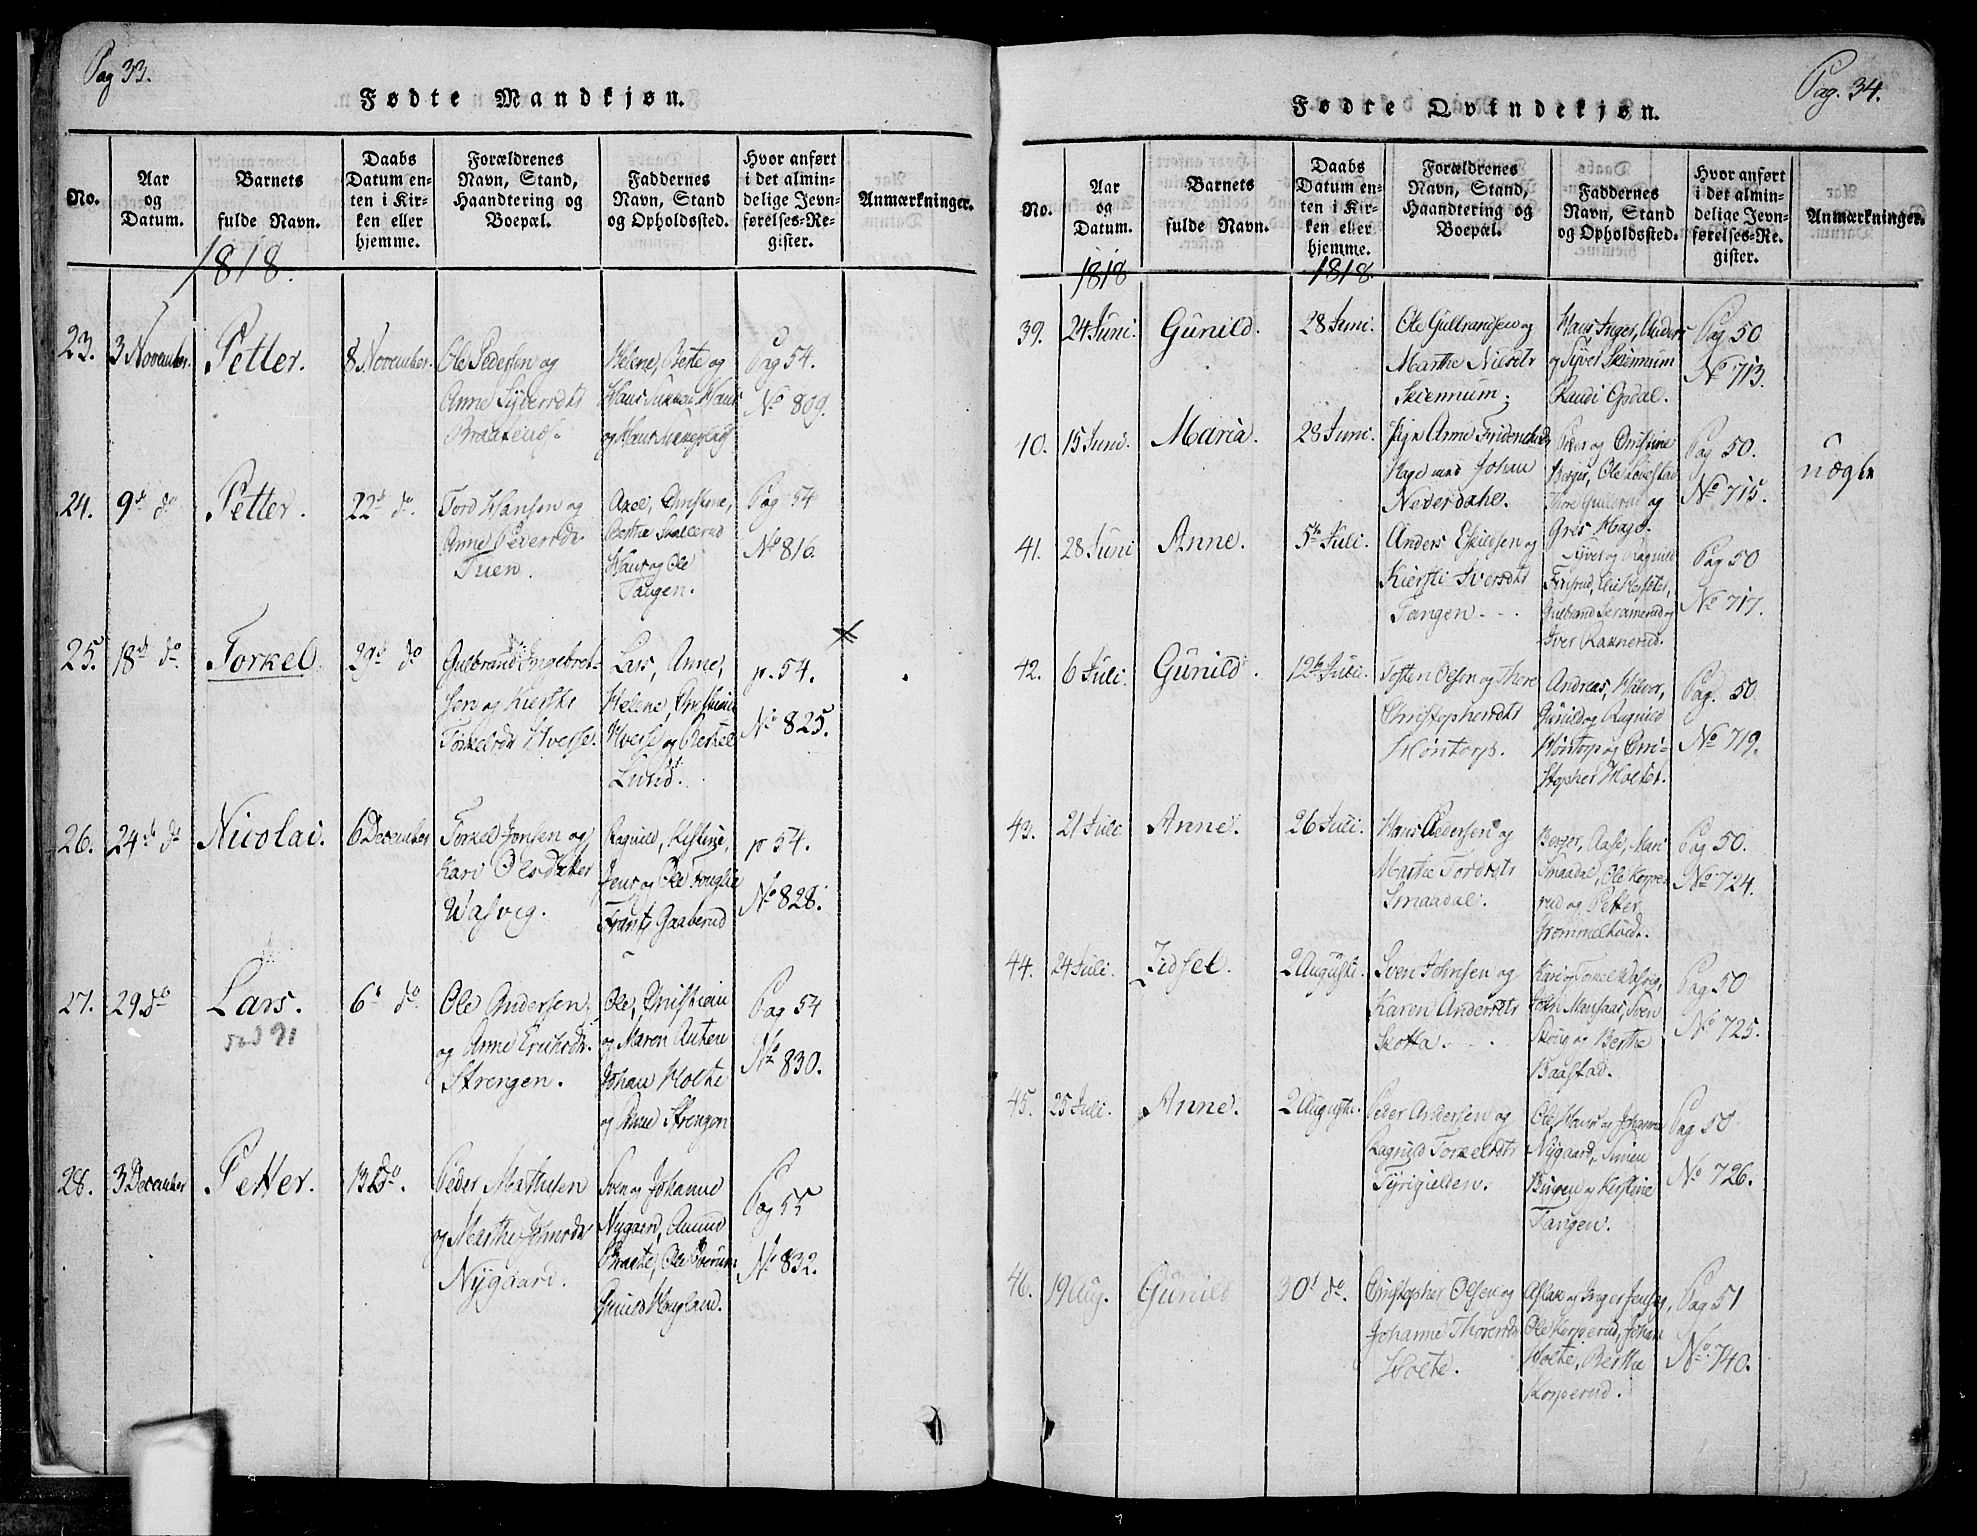 Pag 33.
Fødte Mandkjøn.
No.
Aar
og
Datum.
Barnets
fulde Navn.
Daabs
Datum en-
ten i Kir-
ken eller
hjemme.
Forældrenes
Navn, Stand,
Haandtering og
Boepæl.
Faddernes
Navn, Stand
og Opholdssted.
Hvor anført
i det almin-
delige Jevn-
førelses-Re-
gister.
Anmærkninger.
1818.
23.
3 November.
Petter.
8 November.
Ole Pedersen og
Anne Syverdtr
Braatend.
Helene, Berte og
Hans Hans
og Hans
Pag 54.
No 809.
24.
9d do
Petter.
22d do.
Tord Hansen og
Anne Pedersdr
Tuen.
Axel, Christine,
Berthe Skallerud
Hans og Ole
Tangen.
Pag 54
No 816.
25.
18d do
Torkel.
29d do
Gulbrand Ingebret-
sen og Kierste
Torkelsdr Hverse.
Lars, Anne,
Helene, Christian
Hverse og Oerkel
Lund.
p. 54.
No 825.
26.
24d do
Nicolai.
6 December
Torkel Jonsen og
Kari Olsdatter
Wasvig.
Ragnild, Kistine,
Jens og Ole Fouglie
Frants Gaaberud
p 54.
No 828.
27.
29 do
Lars.
6d do.
Ole Andersen
og Anne Erichsdr.
Strengen.
Ole, Christian
og Maren Auten
Johan Holte
og Anne Strengen
Pag 54
No 830.
28.
3 December
Petter.
13 do.
Peder Mathisen
og Marthe Jonsdr
Nygaard.
Sven og Johanne
Nygaard, Amund
Braate, Ole
Hougland.
Pag 55
No 832.
Pag. 34.
Fødte Qvindekjøn.
No.
Aar
og
Datum.
Barnets
fulde Navn.
Daabs
Datum en-
ten i Kir-
ken eller
hjemme.
Forældrenes
Navn, Stand,
Haandtering og
Boepæl.
Faddernes
Navn, Stand
og Opholdssted.
Hvor anført
i det almin-
delige Jevn-
førelses-Re-
gister.
Anmærkninger.
1818
1818.
39.
24 Juni.
Gunild.
28 Juni.
Ole Gulbrandsen og
Marthe Nielsdtr
Skiennum.
Hans, Inger, Anders
og Syver Skiennum
Randi Opdal.
Pag 50
No 713.
40.
15 Juni.
Maria.
28 Juni.
Pige Anne
Hage med Johan
Nederdahl.
Peder og Christine
Berger, Ole
Thore Gullerud og
Gres Hage.
Pag 50.
No 715.
uægte
41.
28 Juni
Anne.
5te Juli.
Anders Eskildsen og
Kiersti Iversdtr
Tangen.
Syver og Ragnild
Gulbrand
Iver Raknerud.
Pag 50
No 717.
42.
6 Juli.
Gunild.
12te Juli.
Tosten Olsen og Thore
Christophersdtr
Høntorp.
Andreas, Halvor,
Gunild og Ragnild
Høntorp og Chri-
stopher Holter.
Pag. 50
No 719.
43.
21 Juli
Anne.
26 Juli.
Hans Pedersen og
Marthe Tordsdtr
Smaadal.
Berger, Aase, Mari
Smaadal, Ole Korpe-
rud og Petter
Grommelhvid.
Pag 50.
No 724.
44.
24 Juli.
Zidsel.
2 Augusti.
Sven Johnsen og
Karen Andersdtr
Skotta.
Kari og Torkel Wasvig,
John Mensaas, Sven
Skoug og Berthe
Baastad.
Pag 50
No 725.
45.
25 Juli.
Anne.
2 Augusti.
Peder Andersen og
Ragnild Torkelsdtr
Tyrigielden.
Ole, Hans og Johanne
Nygaard, Simen
Buren og Kirstine
Tangen.
Pag 50
No 726.
46.
19 Aug.
Gunild
30d do.
Christopher Olsen og
Johanne Thoresdtr
Holte.
Aslak og Inger
Ole Korperud, Johan
Holte, Berthe
Korperud.
Pag 51
No 740.